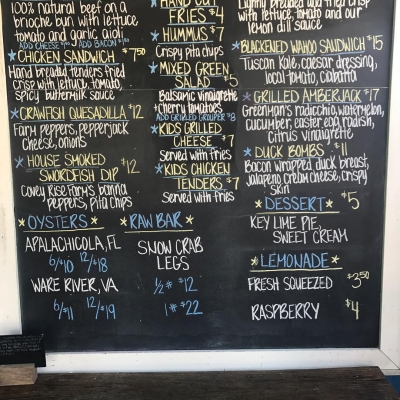 100% natural beef on a
brioche bun with lettuce
tomato and garlic aioli
ADD CHEESE ADD BACON
CHICKEN SANDWICH $7.50
Hand breaded tenders fried
crisp with lettuce, tomato,
spicy buttermilk sauce
CRAWFISH QUESADILLA $12
Farm peppers, pepperjack
cheese, onions
HOUSE SMOKED
SWORDFISH DIP $12
Covey Rise Farms, banna
peppers, pita chips
OYSTERS
APALACHICOLA, FL
6/$10 12/$18
WARE RIVER, VA
6/$11 12/$19
HAND CUT
FRIES $4
HUMMUS $7
Crispy pita chips
MIXED GREEN
SALAD $5
Balsamic vinaigrette
+ cherry tomatoes
ADD GRILLED GROUPER $8
KIDS GRILLED
CHEESE $7
Served with fries
KIDS CHICKEN
TENDERS $7
Served with fries
RAW BAR
SNOW CRAB
LEGS
1/2# $12
1# $22
Lightly breaded and fried crisp
with lettuce, tomato and our
lemon dill sauce
BLACKENED WAHOO SANDWICH $15
Tuscan Kale, caesar dressing,
local tomato, ciabatta
GRILLED AMBERJACK $17
Greenman's radicchio, watermelon,
cucumber, easter egg radish,
citrus vinaigrette
DUCK BOMBS $11
Bacon wrapped duck breast,
jalapeno cream cheese, crispy
skin
DESSERT $5
KEY LIME PIE,
SWEET CREAM
LEMONADE
FRESH SQUEEZED $3.50
RASPBERRY $4